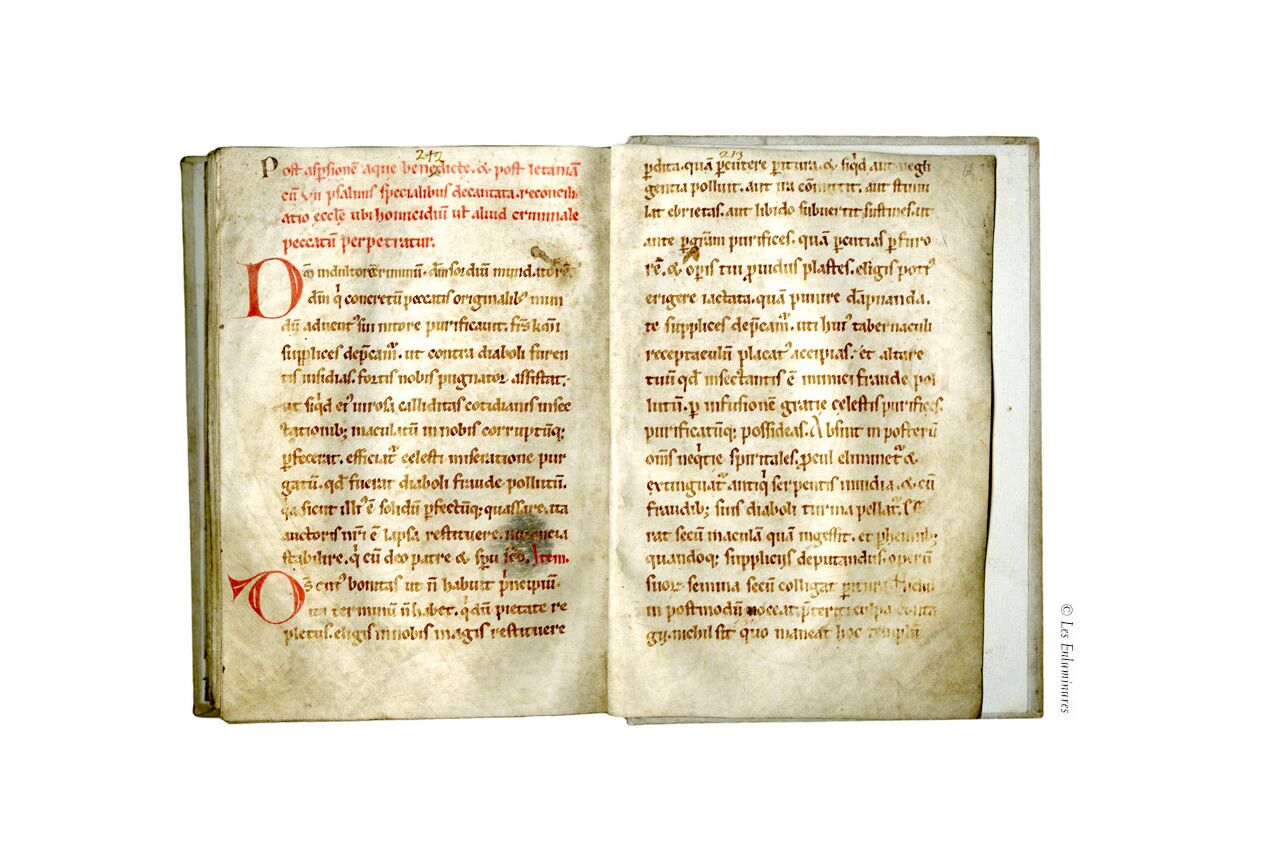 242
Post aspsionē aque benedicte. & post letaniā
cū vii psalmis specialibus decantata. reconcili
atio eccłe ubi homicidiū uł aliud criminale
peccatū perpetratur.
Dm̄ indultorē criminū. dm̄ sordiū mundatorē.
dm̄ q̇ concretū peccatis originalib; mun
dū aduent᾽ sui nitore purificauit. frs̄ kmi
supplices dep̄camr̄. ut contra diaboli furen
tis insidias. fortis nobis pugnator assistat.
ut siq̇d ei᾽ uirosa calliditas cotidianis infec
tationib; maculatū in nobis corruptūq;
p̱fecerat. efficiatr̄ celesti miseratione pur
gatū. qd̄ fuerat diaboli fraude pollutū.
q̇a sicut illi᾽ ē solidū p̱fectūq; quassare. ita
auctoris nr̄i ē lapsa restituere.
stabilire. q̇ cū deo patre & sp̄u sc̄o. Item.
Ds̄ cui᾽ bonitas ut n̄ habuit ṗncipiū.
ita terminū n̄ habet. pietate re
pletus. eligis in nobis magis restituere
213
p̱dita. quā p̱cutere p̱itura. & siq̇d aut negli
gentia polluit. aut ira cōmittit. aut stimu
lat ebrietas. aut libido subuertit sustines. ut
ante p̱ gr̄am purifices. quā p̱cutias p̱ furo
rē. & op̱is tui p̱uidus plastes. eligis poti᾽
erigere iactata. quā punire dāpnanda.
te supplices dep̄camr̄. uti hui᾽ tabernaculi
receptaculū placat᾽ accipias. et altare
tuū qd̄ insectantis ē inimici fraude pol
lutū. p̱ infusionē gratie celestis purifices.
purificatūq; possideas. Absint in posterū
om̄s neq̇tie spiritales. p̱cul eliminetr̄ &
extinguatr̄ antiq̇ serpentis inuidia. & cū
fraudib; suis diaboli turma pellatr̄.
rat secū maculā quam ingessit. et phennib;
quandoq; suppliciis deputandus. operū
suoꝝ semina secū colligat p̱itura. Nichil
in postmodū noceat p̄teriti culpa conta
gii. nichil sit quo maneat hoc templū
© Les Enluminures